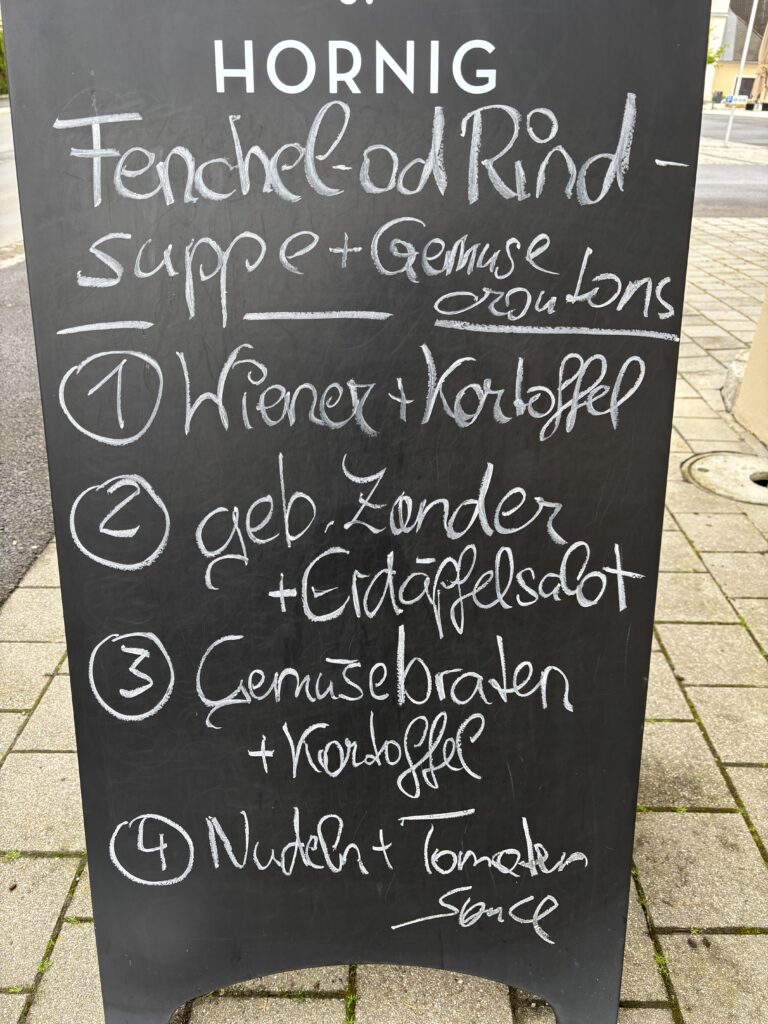 HORNIG
Fenchel-od Rind-
suppe + Gemüse
croutons
1 Wiener + Kartoffel
2 geb. Zander
+ Erdäpfelsalat
3 Gemüsebraten
+ Kartoffel
4 Nudeln + Tomaten
Sauce